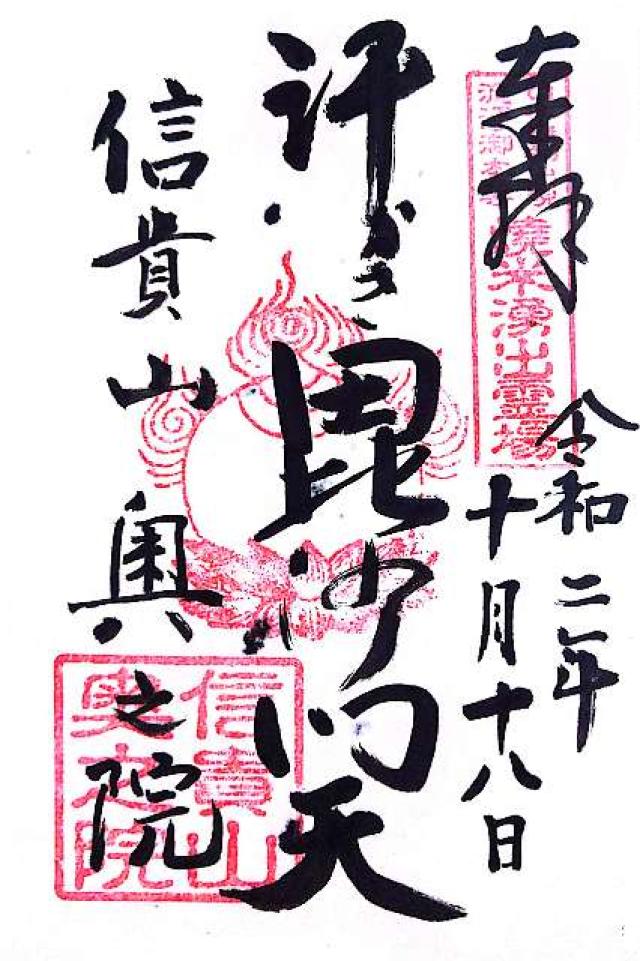 奉拝
令和二年
十月十八日
汗かき毘沙門天
信貴山奥之院
焼米湧出霊場
信貴山
奥之院